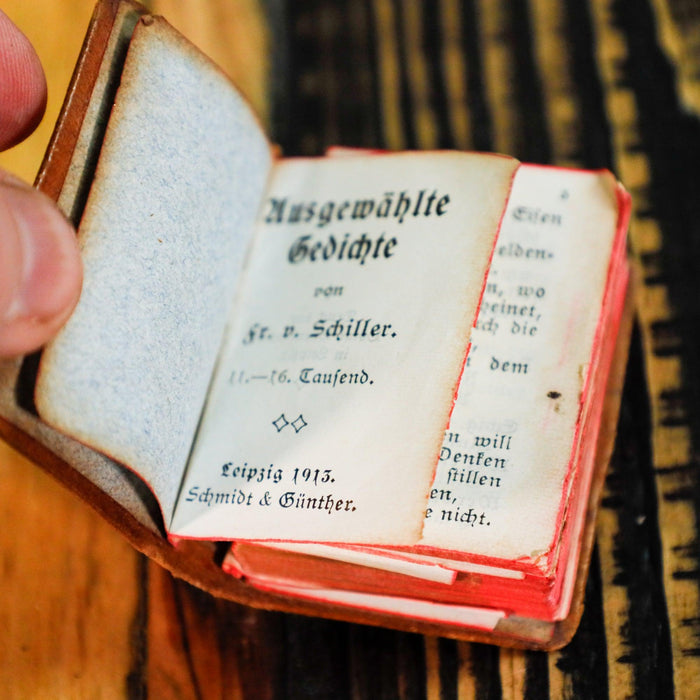 Ausgewählte
Gedichte
von
Fr. v. Schiller.
11.—16. Tausend.
Leipzig 1913.
Schmidt & Günther.
Eisen
elden-
n, wo
heinet,
rch die
dem
n will
Denken
stillen
en,
e nicht.